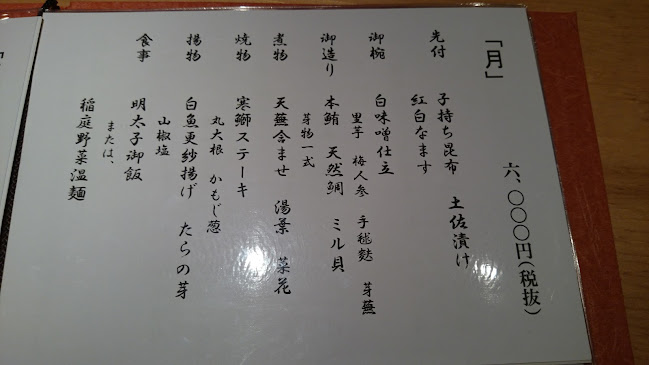 「月」
六、〇〇〇円(税抜)
先付
子持ち昆布 土佐漬け
紅白なます
御椀
白味噌仕立
里芋 梅人参 手毬麩 芽蕪
御造り
本鮪 天然鯛 ミル貝
芽物一式
煮物
天蕪含ませ 湯葉 菜花
焼物
寒鰤ステーキ
丸大根 かもじ葱
揚物
白魚更紗揚げ たらの芽
山椒塩
食事
明太子御飯
または、
稲庭野菜温麺